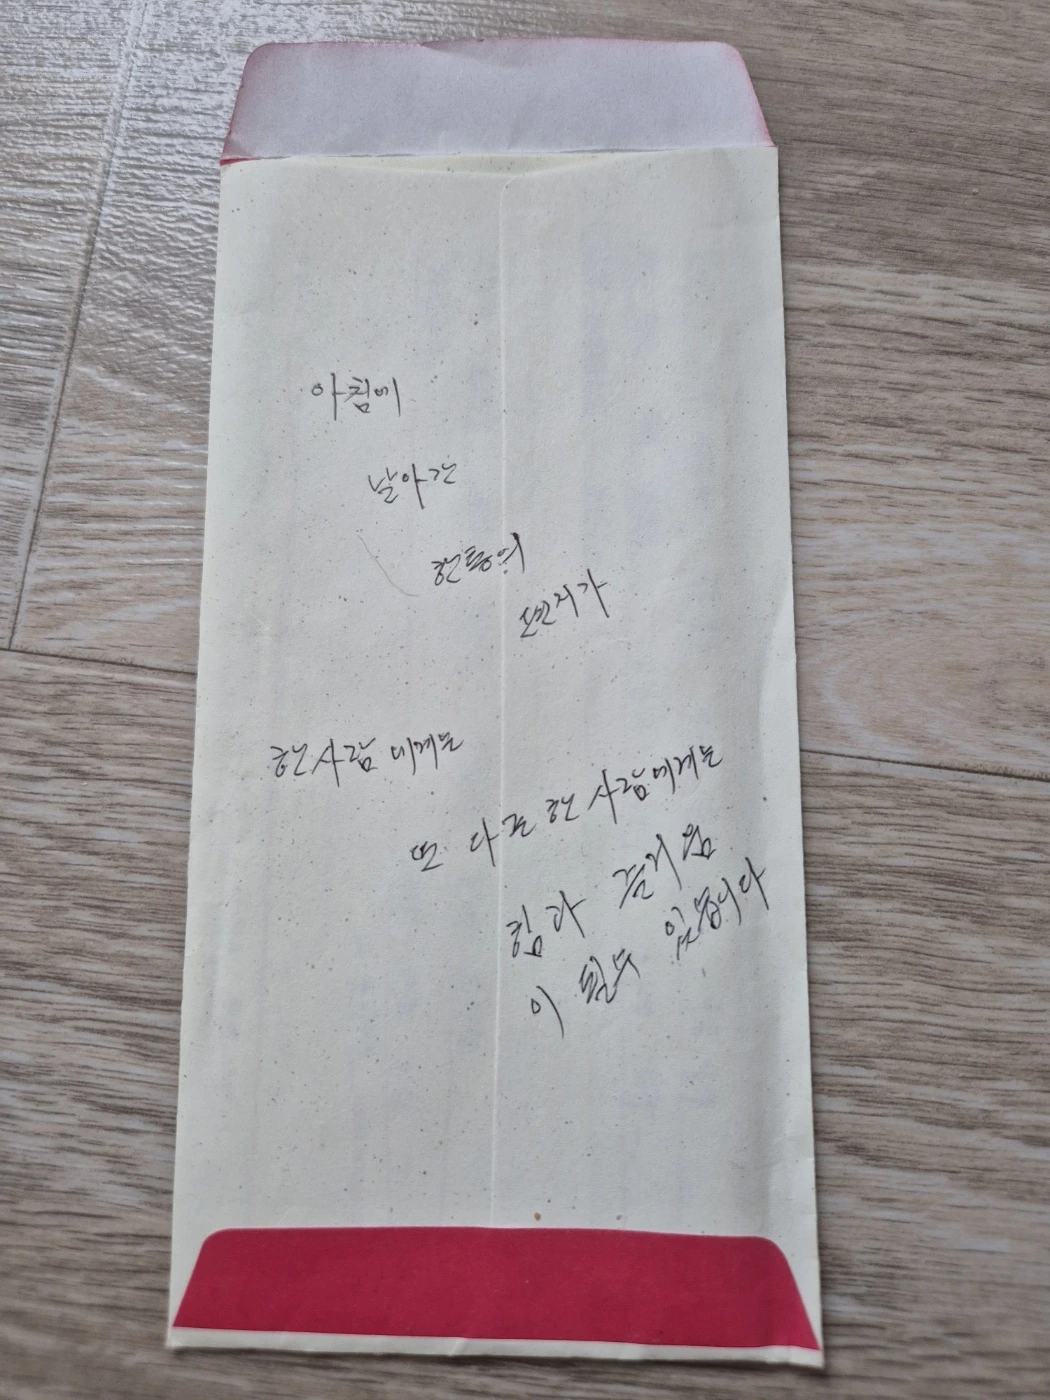 아침에
날아간
한통의
편지가
한사람에게는
또 다른 한 사람에게는
힘과 즐거움
이 될수 있습니다